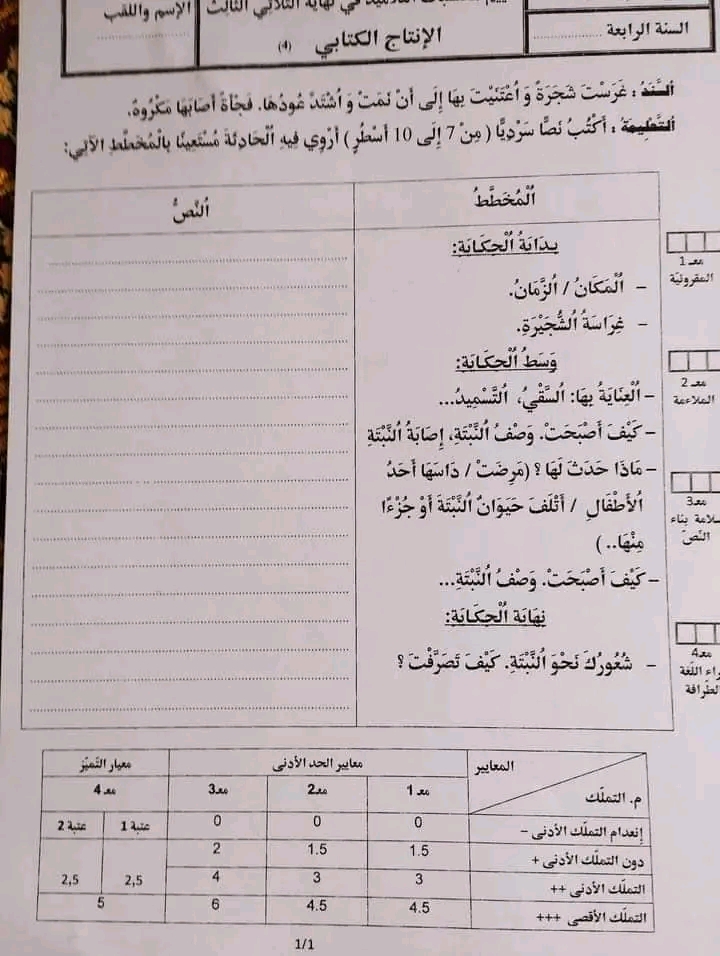 في نهاية الثلاثي الثالث
الإسم واللقب
السنة الرابعة
الإنتاج الكتابي
(4)
اَلسَّنَدُ : غَرَسْتَ شَجَرَةً وَ اُعْتَنَيْتَ بِهَا إِلَى أَنْ نَمَتْ وَ اُشْتَدَّ عُودُهَا. فَجْأَةً أَصَابَهَا مَكْرُوهٌ.
اَلتَّعْلِيمَة : أَكْتُبُ نَصًّا سَرْدِيًّا ( مِنْ 7 إِلَى 10 أَسْطُرٍ ) أَرْوِي فِيهِ اُلْحَادِثَةَ مُسْتَعِينًا بِالْمُخَطَّطِ الآتِي:
اُلْمُخَطَّطُ
اُلنَّصُّ
بِدَايَةُ اُلْحِكَايَةِ:
- اُلْمَكَانُ / اُلزَّمَانُ.
- غِرَاسَةُ اُلشُّجَيْرَةِ.
وَسَطُ اُلْحِكَايَةِ:
- اُلْعِنَايَةُ بِهَا: اُلسَّقْيُ، اُلتَّسْمِيدُ...
- كَيْفَ أَصْبَحَتْ. وَصْفُ اُلنَّبْتَةِ، إِصَابَةُ اُلنَّبْتَةِ
- مَاذَا حَدَثَ لَهَا ؟ (مَرِضَتْ / دَاسَهَا أَحَدُ
اُلْأَطْفَالِ / أَتْلَفَ حَيَوَانٌ اُلنَّبْتَةَ أَوْ جُزْءًا
مِنْهَا.. )
- كَيْفَ أَصْبَحَتْ. وَصْفُ اُلنَّبْتَةِ...
نِهَايَةُ اُلْحِكَايَةِ:
- شُعُورُكَ نَحْوَ اُلنَّبْتَةِ. كَيْفَ تَصَرَّفْتَ ؟
معـ 1
المقروئية
معـ 2
الملاءمة
معـ3
بناء
النّصّ
معـ4
اللّغة
المعايير
معايير الحد الأدنى
معيار التّميّز
م. التملّك
معـ 1
معـ2
معـ3
معـ 4
إنعدام التملّك الأدنى -
0
0
0
عتبة 1
عتبة 2
دون التملّك الأدنى +
1.5
1.5
2
التملّك الأدنى ++
3
3
4
2,5
2,5
التملّك الأقصى +++
4.5
4.5
6
5
1/1